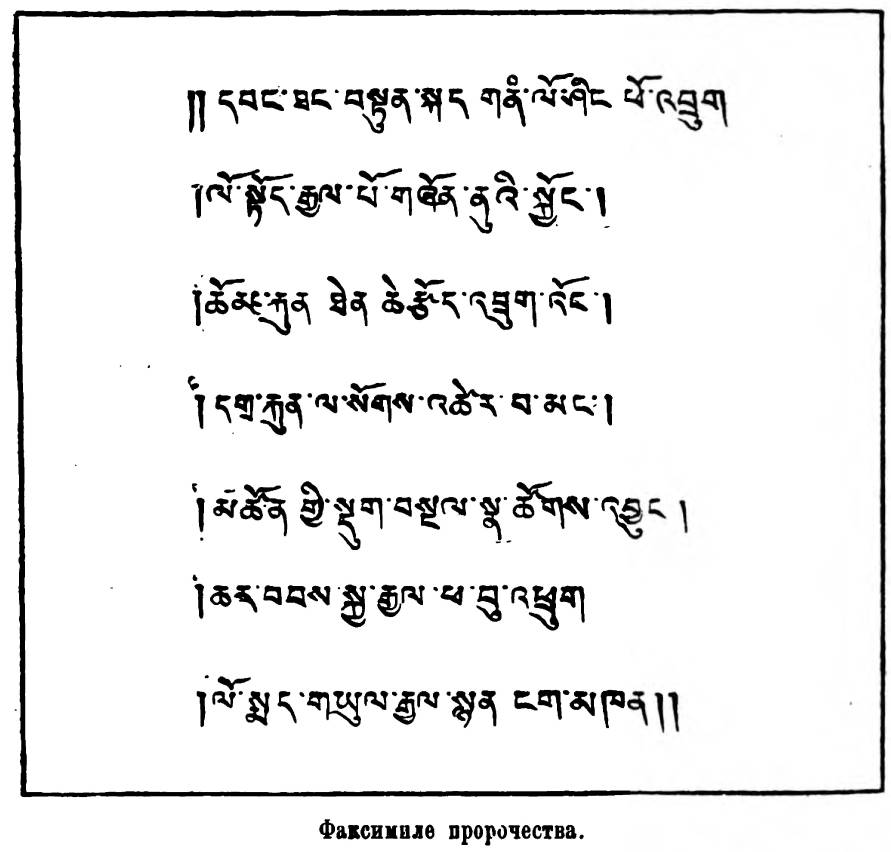 ༎ དབང་ཐང་བསྟུན་སྐད གནཾ་ལོ་ཤིང ཕོ་འབྲུག
།ལོ་སྟོད་རྒྱལ་པོ་གཞོན་ནུའི་སྐྱོང་།
།ཆོམ་རྐུན ཐེན ཆེ་རྩོད་འཁྲུག་འོང་།
།དགྲ་རྐུན་ལ་སོགས་འཚེར་བ་མང་།
།མཚོན གྱི་སྡུག་བསྔལ་སྣ་ཚོགས་འབྱུང །
།ཆར་བབས་སྐྱ་རྒྱལ་ཕ་བུ་འཕྲུག
།ལོ་སྨད་གཡུལ་རྒྱལ་སྙན ངག་མཁན།།
Факсимиле пророчества.